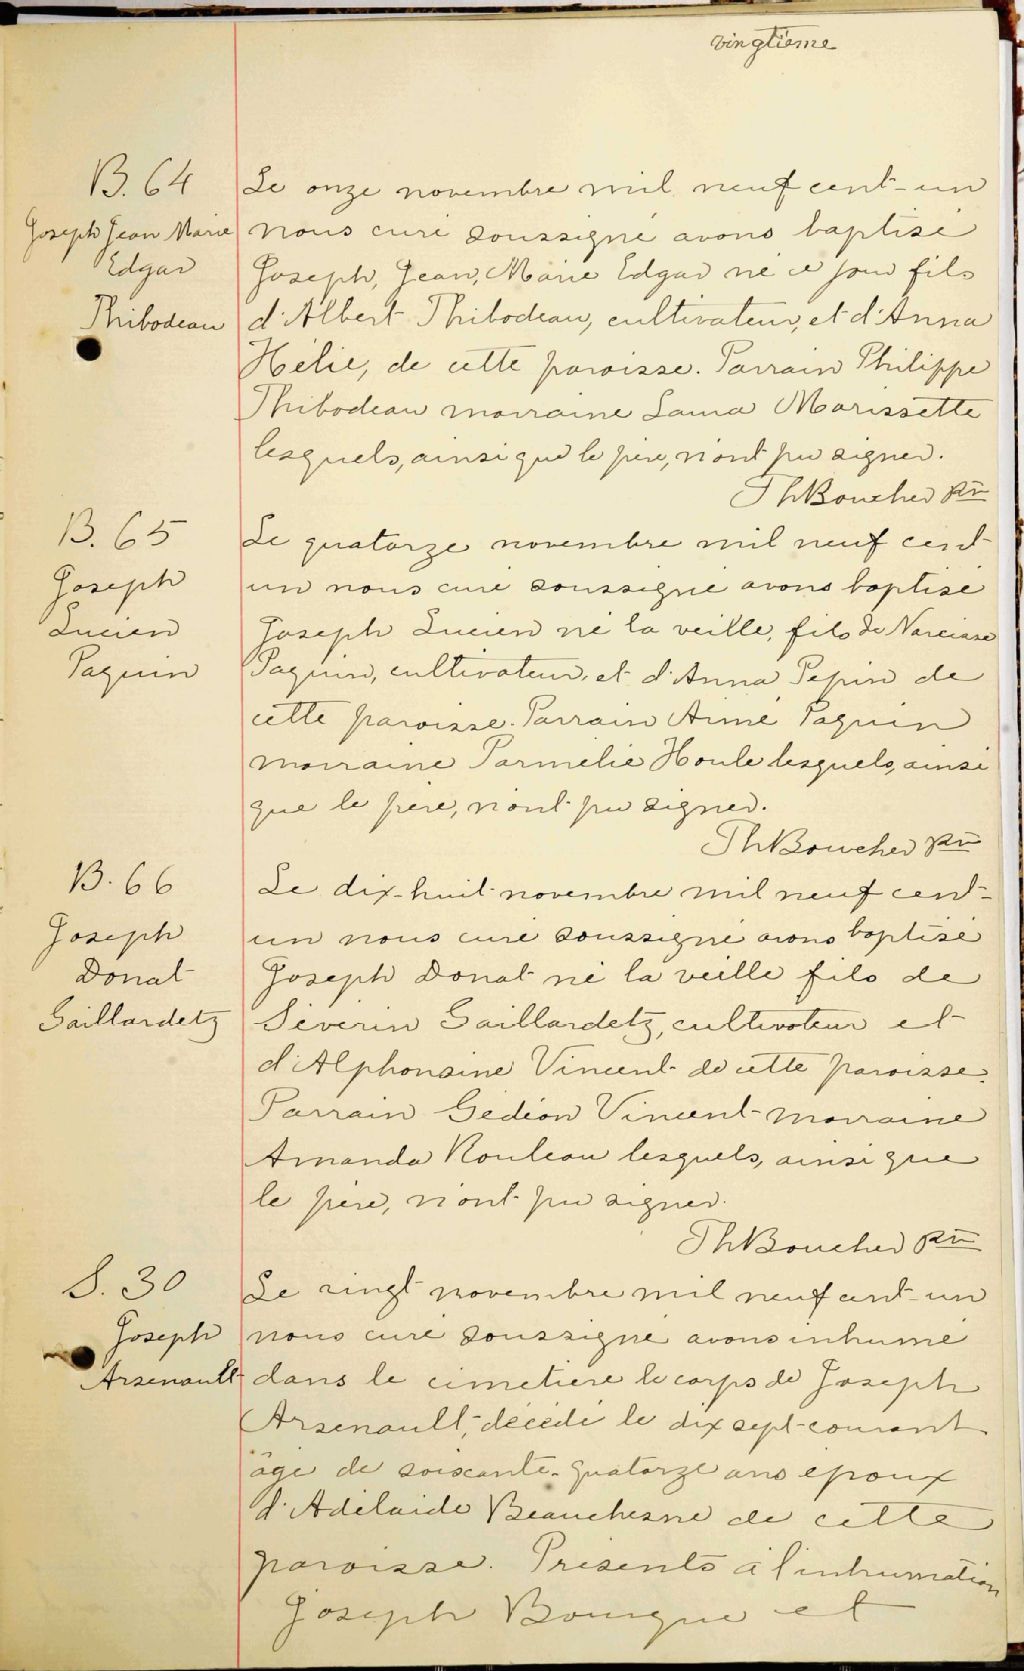 vingtième
B. 64
Joseph Jean Marie
Edgar
Thibodeau
Le onze novembre mil neuf cent-un
nous curé soussigné avons baptisé
Joseph, Jean, Marie Edgar né ce jour fils
d'Albert Thibodeau, cultivateur, et d'Anna
Hélie, de cette paroisse. Parrain Philippe
Thibodeau marraine Laura Marissette
lesquels, ainsi que le père, n'ont pu signer.
ThBoucher ptre
B. 65
Joseph
Lucien
Paquin
Le quatorze novembre mil neuf cent-
un nous curé soussigné avons baptisé
Joseph Lucien né la veille, fils de Narcisse
Paquin, cultivateur, et d'Anna Pepin de
cette paroisse. Parrain Aimé Paquin
marraine Parmélie Houle lesquels, ainsi
que le père, n'ont pu signer.
ThBoucher ptre
B. 66
Joseph
Donat
Gaillardetz
Le dix-huit novembre mil neuf cent-
un nous curé soussigné avons baptisé
Joseph Donat né la veille fils de
Séverin Gaillardetz, cultivateur et
d'Alphonsine Vincent de cette paroisse.
Parrain Gédéon Vincent marraine
Amanda Rouleau lesquels, ainsi que
le père, n'ont pu signer.
ThBoucher ptre
S. 30
Joseph
Arsenault
Le vingt novembre mil neuf cent-un
nous curé soussigné avons inhumé
dans le cimetière le corps de Joseph
Arsenault, décédé le dix sept courant
âgé de soixante-quatorze ans époux
d'Adélaide Beauchesne de cette
paroisse. Présents à l'inhumation
Joseph Bourque et